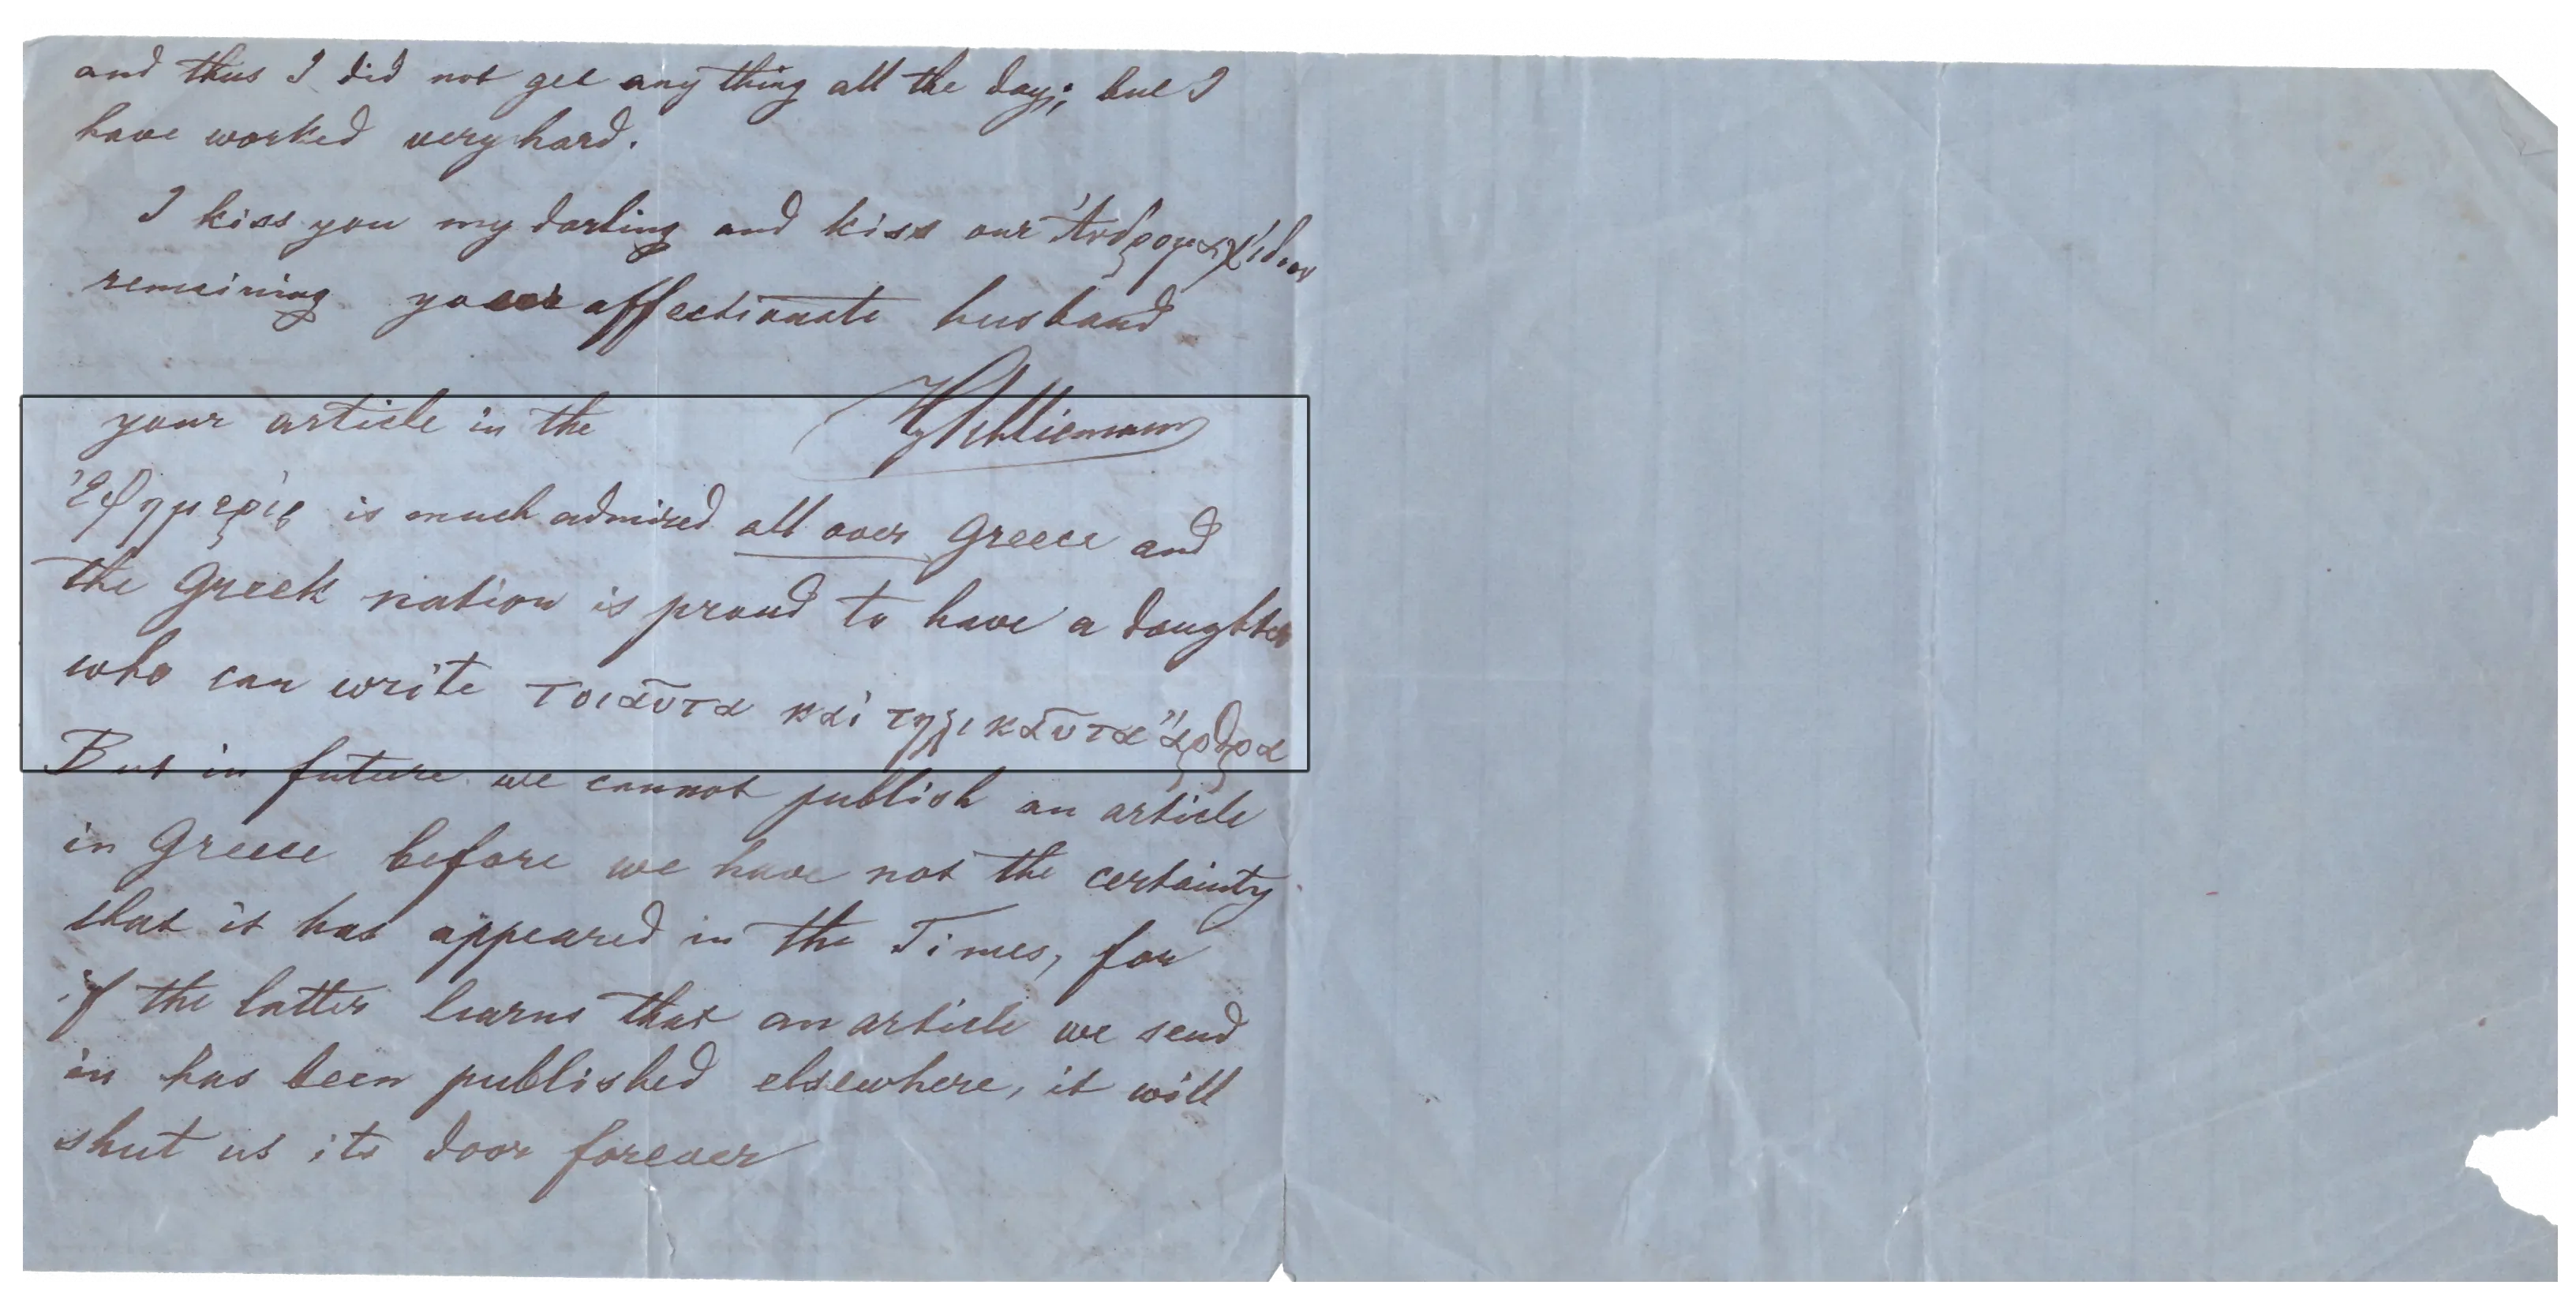 and thus I did not get any thing all the day; but I
have worked very hard.
I kiss you my darling and kiss our Ἀνδρομαχίδιον
remaining your affectionate husband
HySchliemann
your article in the
Ἐφημερίς is much admired all over Greece and
the Greek nation is proud to have a daughter
who can write τοιαῦτα καὶ τηλικαῦτα ἄρθρα
But in future we cannot publish an article
in Greece before we have not the certainty
that it has appeared in the Times, for
if the latter learns that an article we send
in has been published elsewhere, it will
shut us its door forever